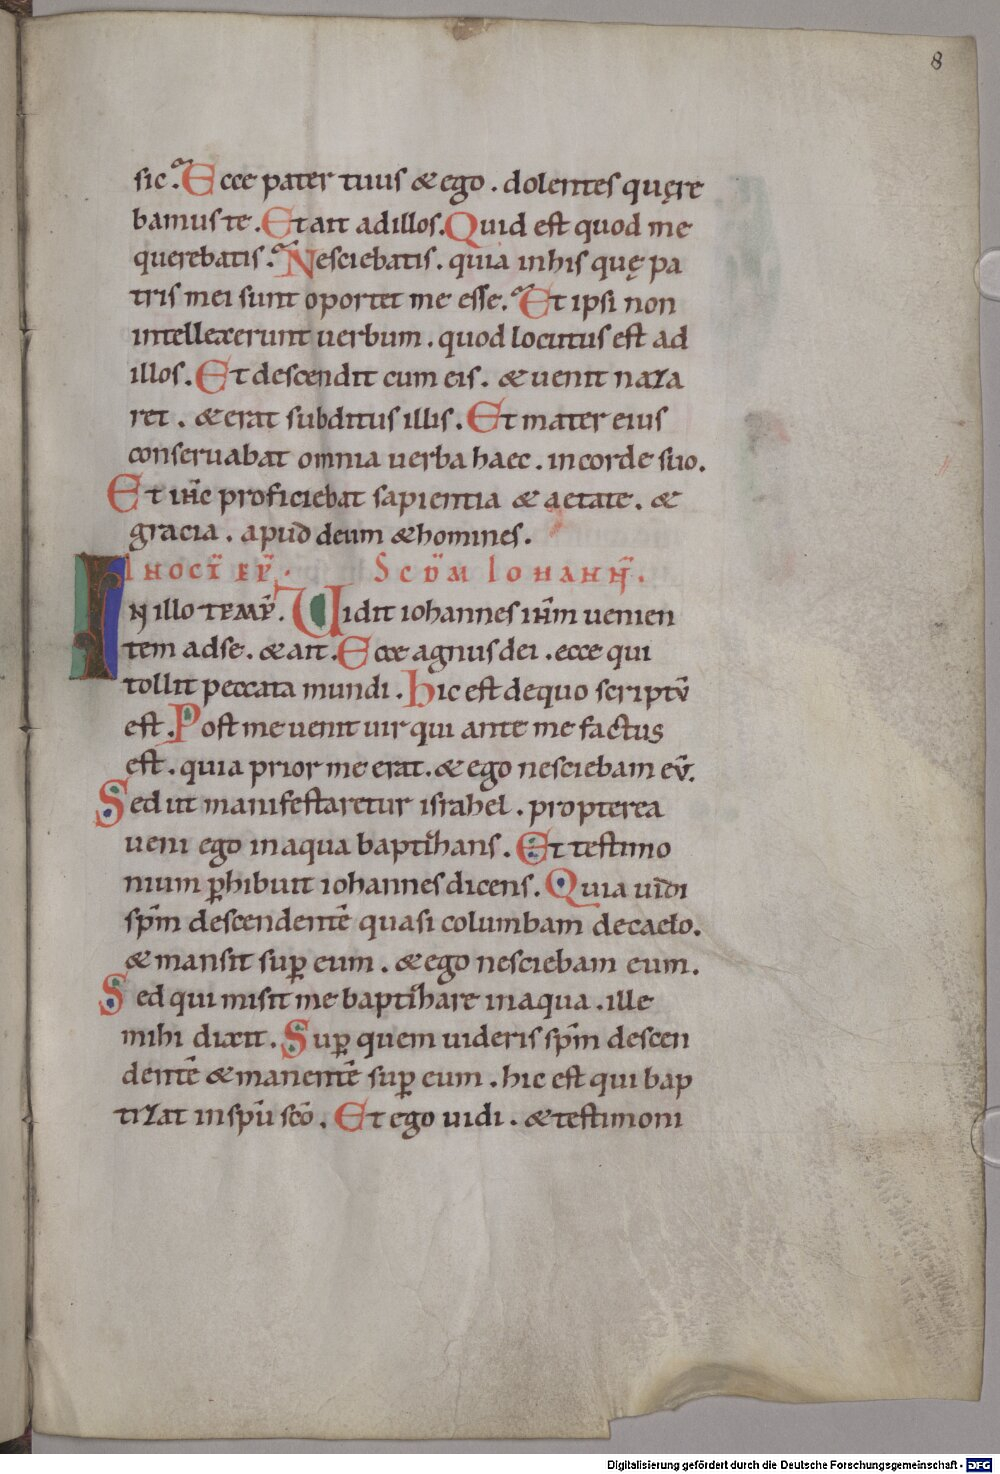 8
sic. Ecce pater tuus & ego . dolentes quęre
bamus te . Et ait ad illos. Quid est quod me
querebatis . Nesciebatis . quia in his quę pa
tris mei sunt oportet me esse. Et ipsi non
intellexerunt uerbum . quod locutus est ad
illos . Et descendit cum eis . & uenit naza
ret . & erat subditus illis . Et mater eius
conseruabat omnia uerba haec . in corde suo.
Et ih̅c proficiebat sapientia & aetate . &
gracia . apud deum & homines .
IN OCT̅ EP̅. SCD̅M IOHANN̅.
IN illo TEMP̅. Uidit iohannes ih̅m uenien
tem ad se . & ait . Ecce agnus dei . ecce qui
tollit peccata mundi . Hic est de quo scriptu̅
est . Post me uenit uir qui ante me factus
est . quia prior me erat . & ego nesciebam eu̅.
Sed ut manifestaretur israhel . propterea
ueni ego in aqua baptihans . Et testimo
nium ꝑhibuit iohannes dicens . Quia uidi
sp̅m descendente̅ quasi columbam de caelo.
& mansit suꝑ eum . & ego nesciebam eum.
Sed qui misit me baptihare in aqua . ille
mihi dixit . Suꝑ quem uideris sp̅m descen
dente̅ & manente̅ suꝑ eum . hic est qui bap
tizat in sp̅u sc̅o . Et ego uidi . & testimoni
Digitalisierung gefördert durch die Deutsche Forschungsgemeinschaft - DFG